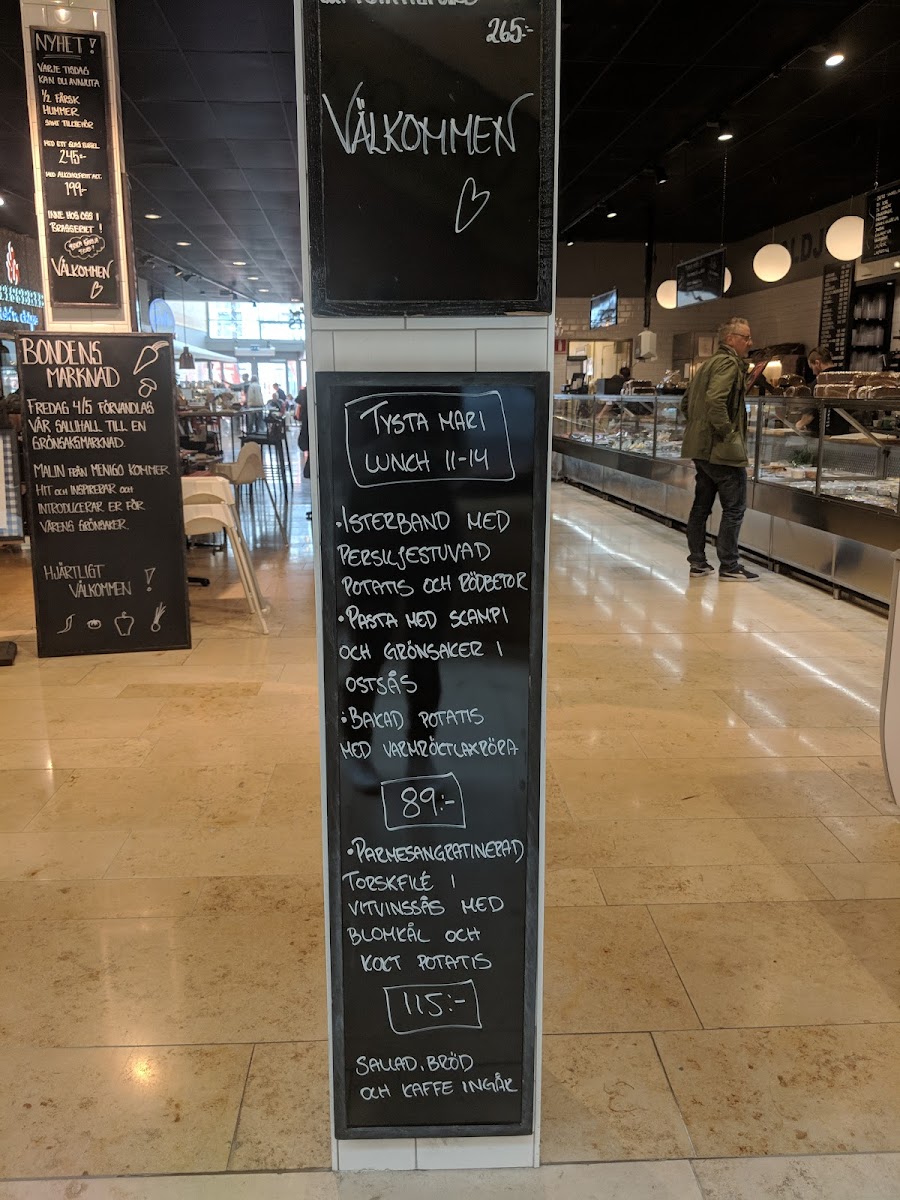 NYHET!
VARJE TISDAG
KAN DU AVNJUTA
1/2 FÄRSK
HUMMER
SAMT TILLBEHÖR
MED ETT GLAS BUBBEL
245:-
MED ALKOHOLFRITT ALT.
199:-
INNE HOS OSS I
BRASSERIET!
VÄLKOMMEN
BONDENS
MARKNAD
FREDAG 4/5 FÖRVANDLAS
VÅR SALUHALL TILL EN
GRÖNSAKSMARKNAD.
MALIN FRÅN MENIGO KOMMER
HIT OCH INSPIRERAR OCH
INTRODUCERAR ER FÖR
VÅRENS GRÖNSAKER.
HJÄRTLIGT
VÄLKOMMEN!
265:-
VÄLKOMMEN
TYSTA MARI
LUNCH 11-14
•ISTERBAND MED
PERSILJESTUVAD
POTATIS OCH RÖDBETOR
•PASTA MED SCAMPI
OCH GRÖNSAKER I
OSTSÅS
•BAKAD POTATIS
MED VARMRÖKTLAXRÖRA
89:-
•PARMESANGRATINERAD
TORSKFILÉ I
VITVINSSÅS MED
BLOMKÅL OCH
KOKT POTATIS
115:-
SALLAD, BRÖD
OCH KAFFE INGÅR